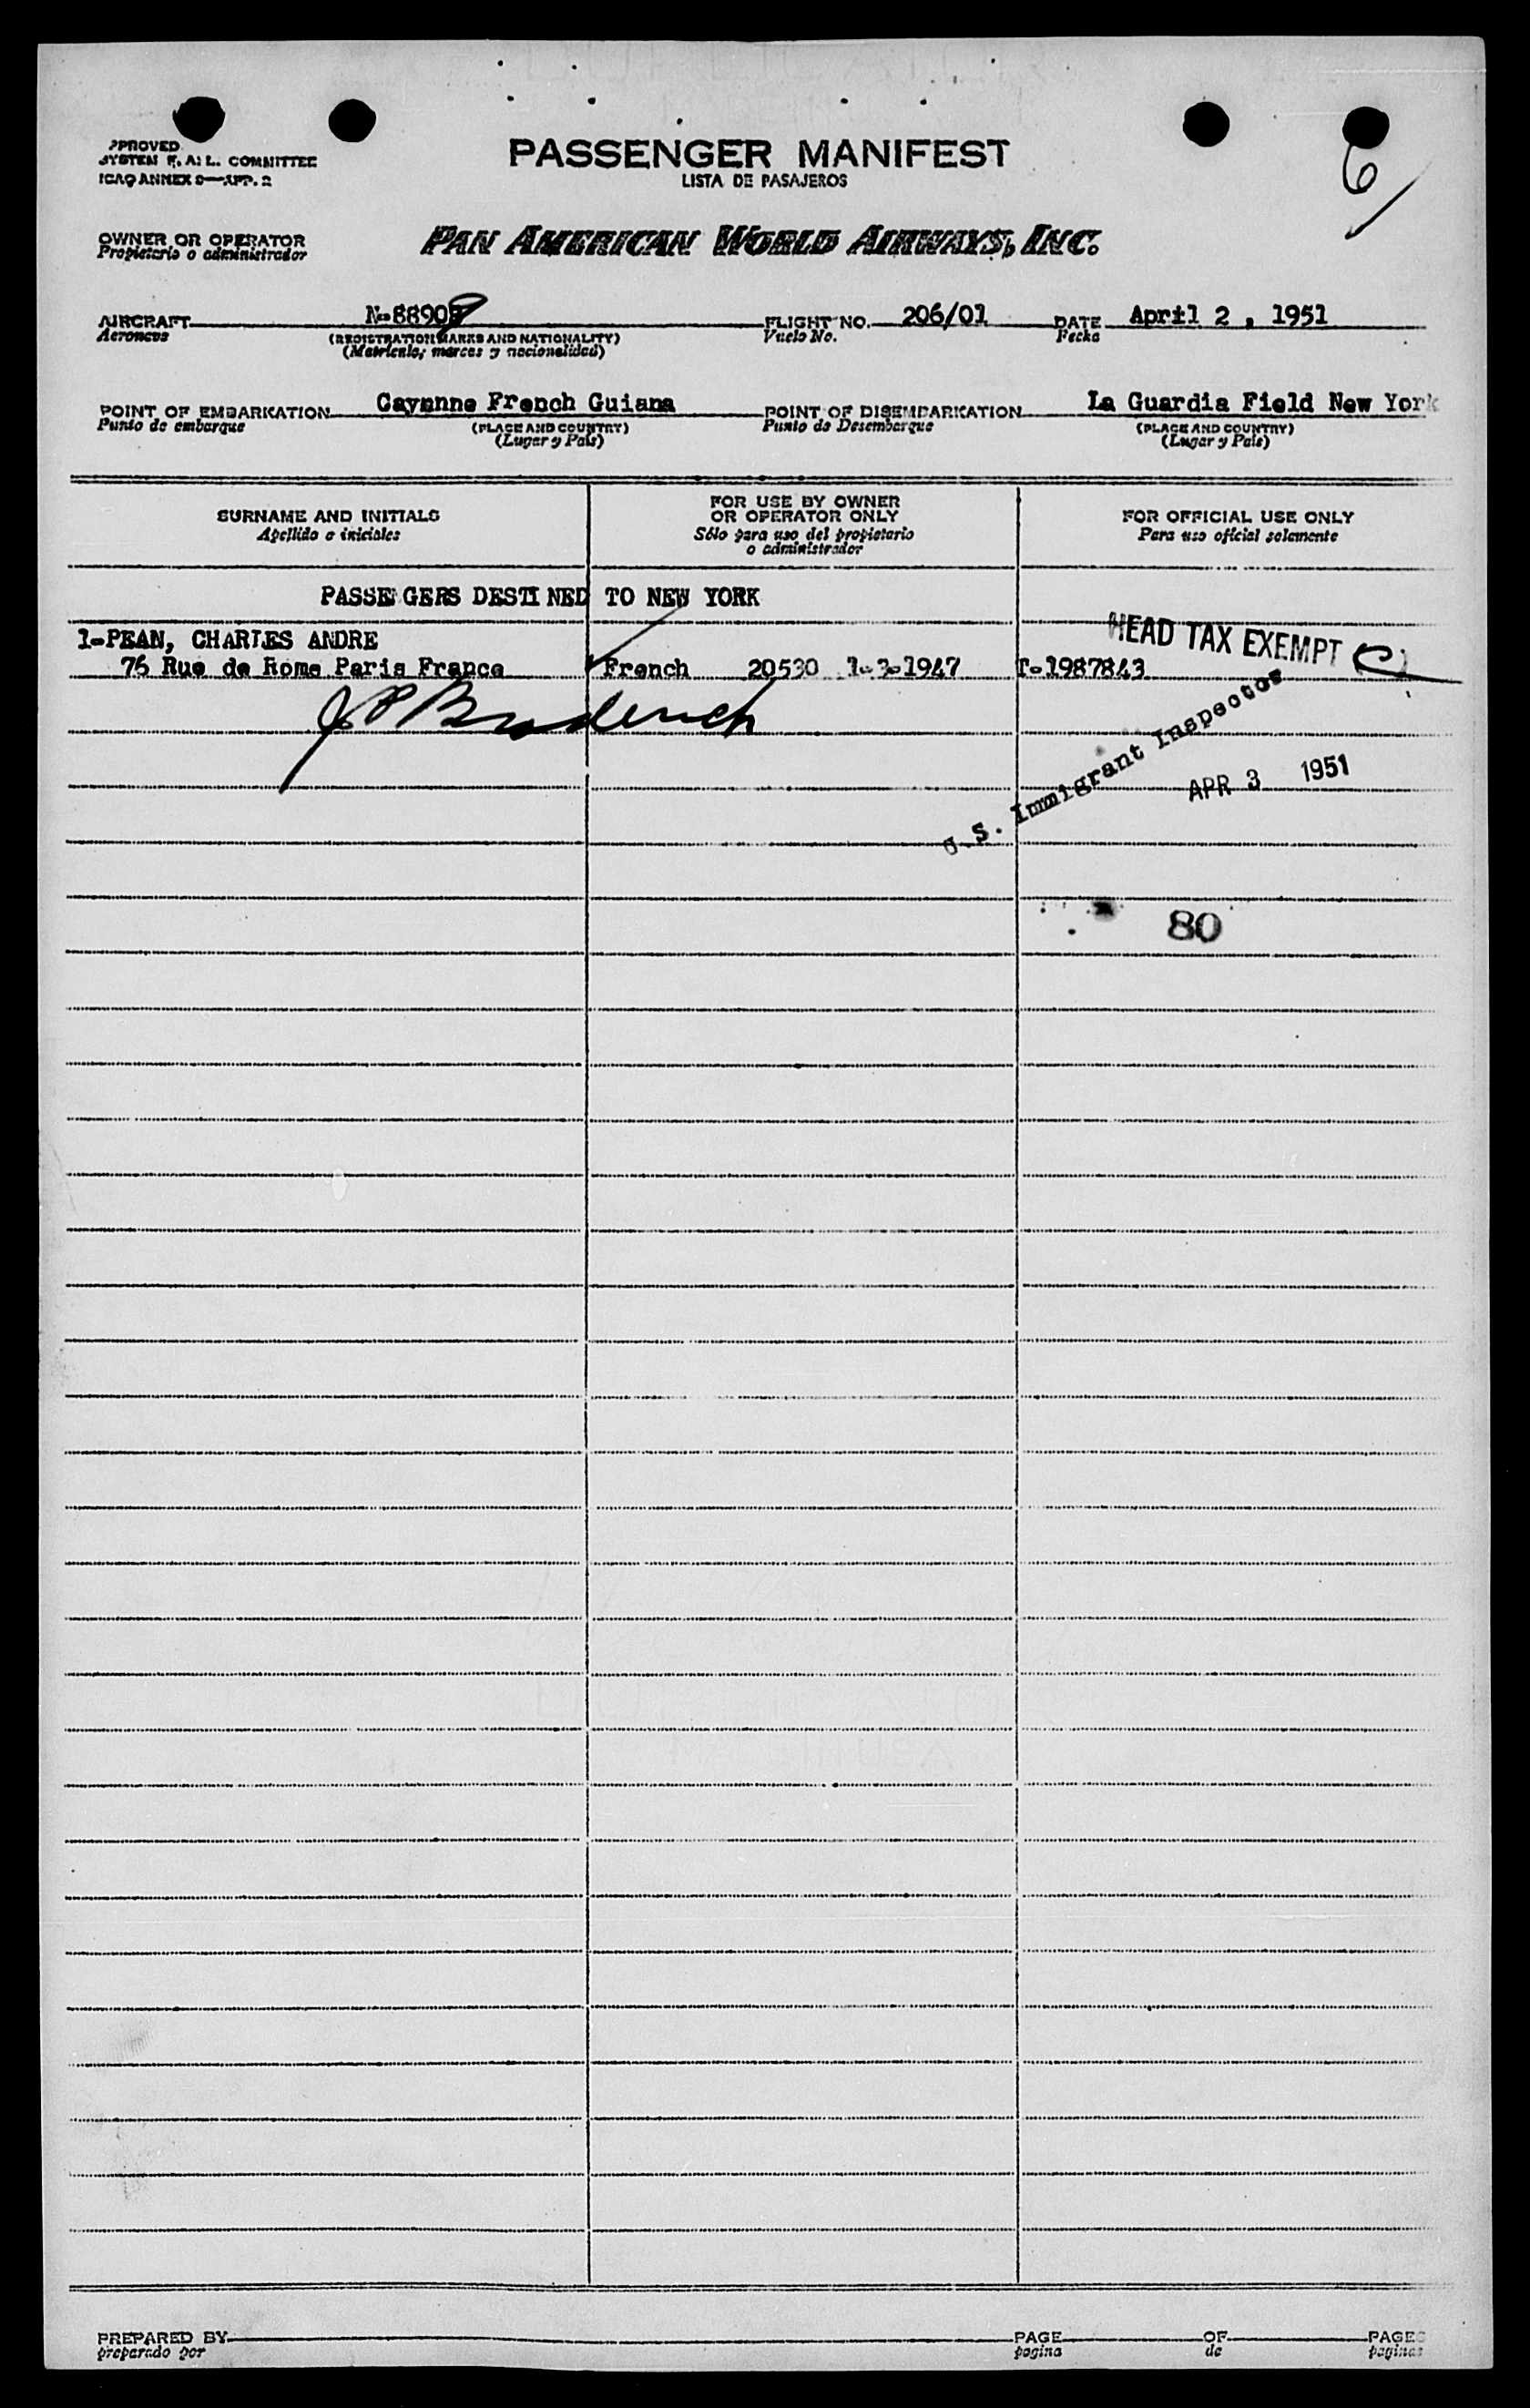 APPROVED
SYSTEM F. A. L. COMMITTEE
ICAO ANNEX 9—APP. 2
PASSENGER MANIFEST
LISTA DE PASAJEROS
6
OWNER OR OPERATOR
Propietario o administrador
PAN AMERICAN WORLD AIRWAYS, INC.
AIRCRAFT N-88908 FLIGHT NO. 206/01 DATE April 2 , 1951
Aeronave (REGISTRATION MARKS AND NATIONALITY) Vuelo No. Fecha
(Matricula, marcas y nacionalidad)
POINT OF EMBARKATION Cayenne French Guiana POINT OF DISEMBARKATION La Guardia Field New York
Punto de embarque (PLACE AND COUNTRY) Punto de Desembarque (PLACE AND COUNTRY)
(Lugar y País) (Lugar y País)
SURNAME AND INITIALS
Apellido e iniciales
FOR USE BY OWNER
OR OPERATOR ONLY
Sólo para uso del propietario
o administrador
FOR OFFICIAL USE ONLY
Para uso oficial solamente
PASSENGERS DESTINED TO NEW YORK
1-PEAN, CHARLES ANDRE HEAD TAX EXEMPT
76 Rue de Rome Paris France French 20530 1-3-1947 T-1987843
J P Broderick
U.S. Immigrant Inspector
APR 3 1951
80
PREPARED BY PAGE OF PAGES
preparado por pagina de paginas